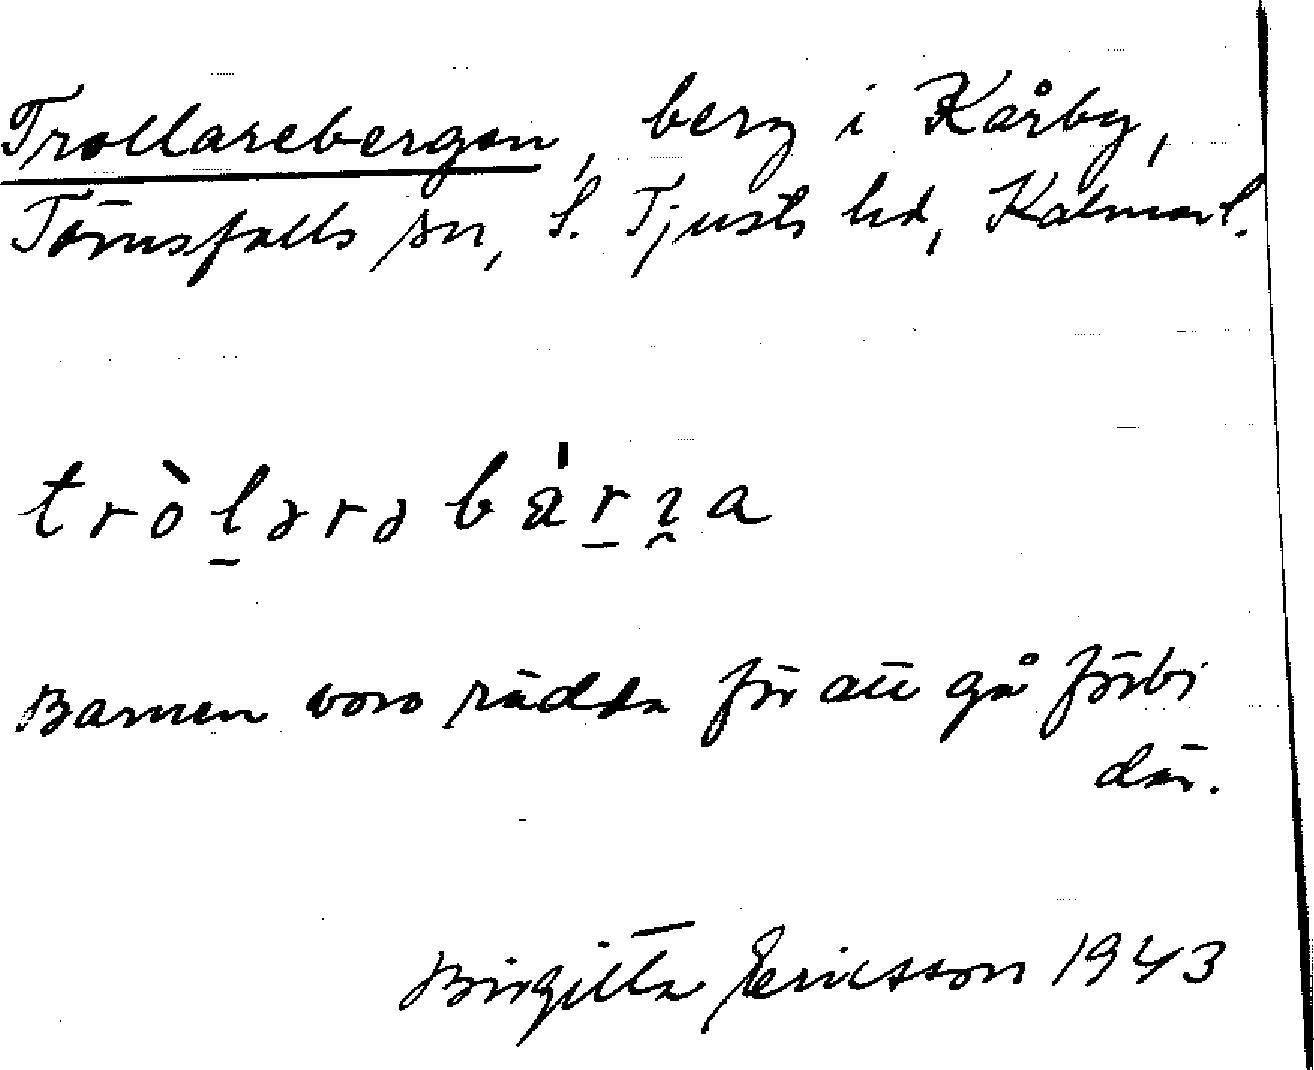 Trollarebergen, berg i Kårby,
Törnsfalls sn, S. Tjusts hd, Kalmar l.
tròl̠ərə bá̈r̠ɀ̯a
Barnen voro rädda för att gå förbi
där.
Birgitta Ericsson 1943